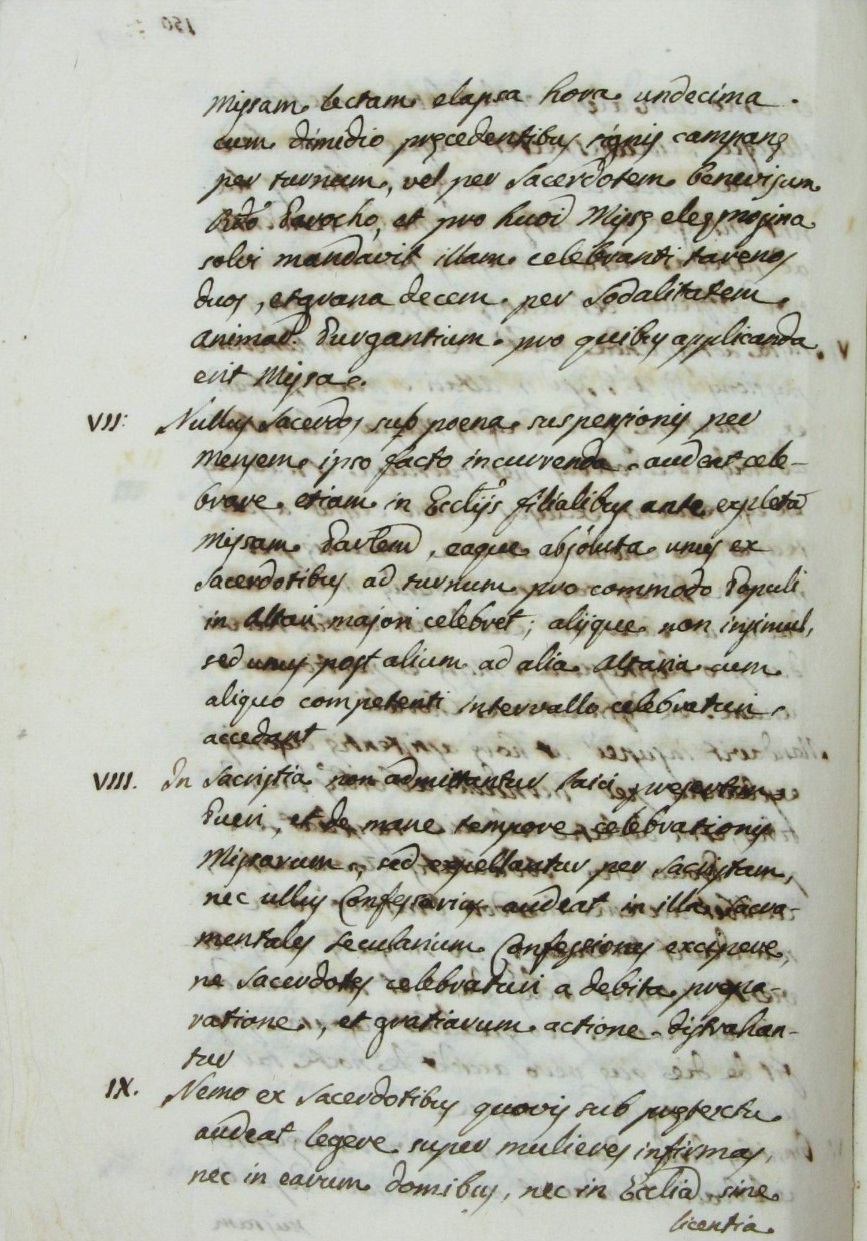 Missam lectam elapsa hora undecima
cum dimidio pręcedentibus signis campanę
per turnum, vel per Sacerdotem benevisum
Rdo Parocho, et pro huõi Missę eleęmosina
solvi mandavit illam celebranti tarenos
duos, et grana decem per Sodalitatem
Animar. Purgantium pro quibus applicanda
erit Missa.
VII: Nullus Sacerdos sub poena suspensionis per
Mensem ipso facto incurrenda audeat cele-
brare etiam in Eccliis filialibus ante expletã
Missam Parlem, eaque absoluta unus ex
Sacerdotibus ad turnum pro commodo Populi
in Altari majori celebret; alijque non insimul,
sed unus post alium ad alia Altaria cum
aliquo competenti intervallo celebraturi
accedant
VIII. In Sacristia non admittantur laici presertim
Pueri, et de mane tempore celebrationis
Missarum, sed expellantur per Sacristam,
nec ullus Confessarius audeat in illa Sacra-
mentales secularium Confessiones excipere,
ne Sacerdotes celebraturi a debita prepa-
ratione, et gratiarum actione distrahan-
tur
IX. Nemo ex Sacerdotibus quovis sub prętextu
audeat legere super mulieres infirmas,
nec in earum domibus, nec in Ecclia sine
licentia